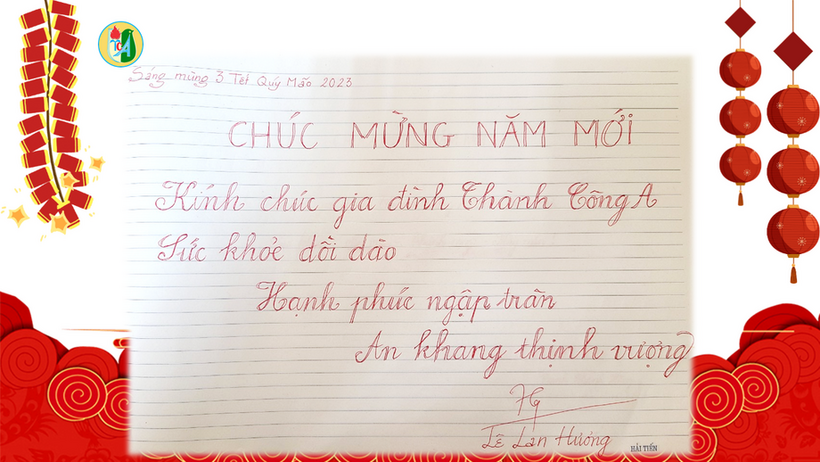 TCA
Sáng mùng 3 Tết Quý Mão 2023
CHÚC MỪNG NĂM MỚI
Kính chúc gia đình Thành Công A
Sức khỏe dồi dào
Hạnh phúc ngập tràn
An khang thịnh vượng
Lê Lan Hương
HẢI TIẾN